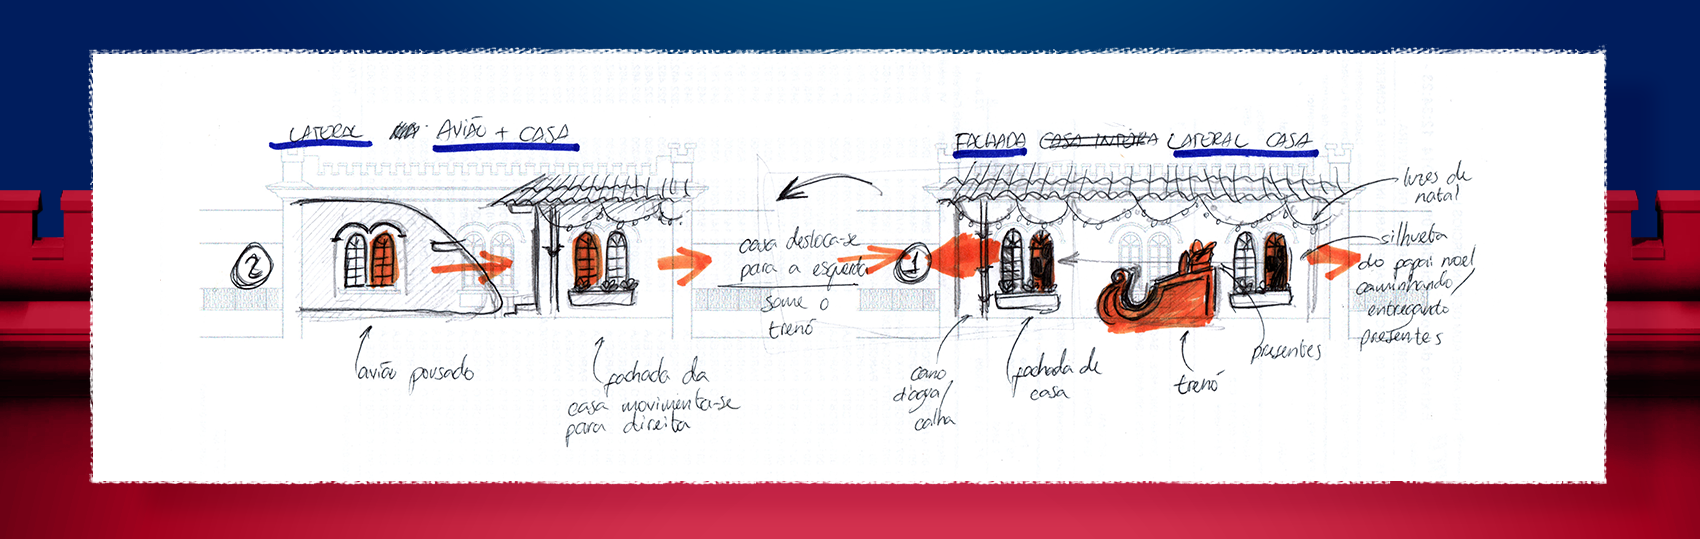 LATERAL AVIÃO + CASA
2
avião pousado
fachada da
casa movimenta-se
para direita
casa desloca-se
para a esquerda
some o
trenó
FACHADA CASA INTEIRA LATERAL CASA
1
luzes de
natal
silhueta
do papai noel
caminhando/
entregando
presentes
presentes
trenó
fachada de
casa
cano
d'água/
calha